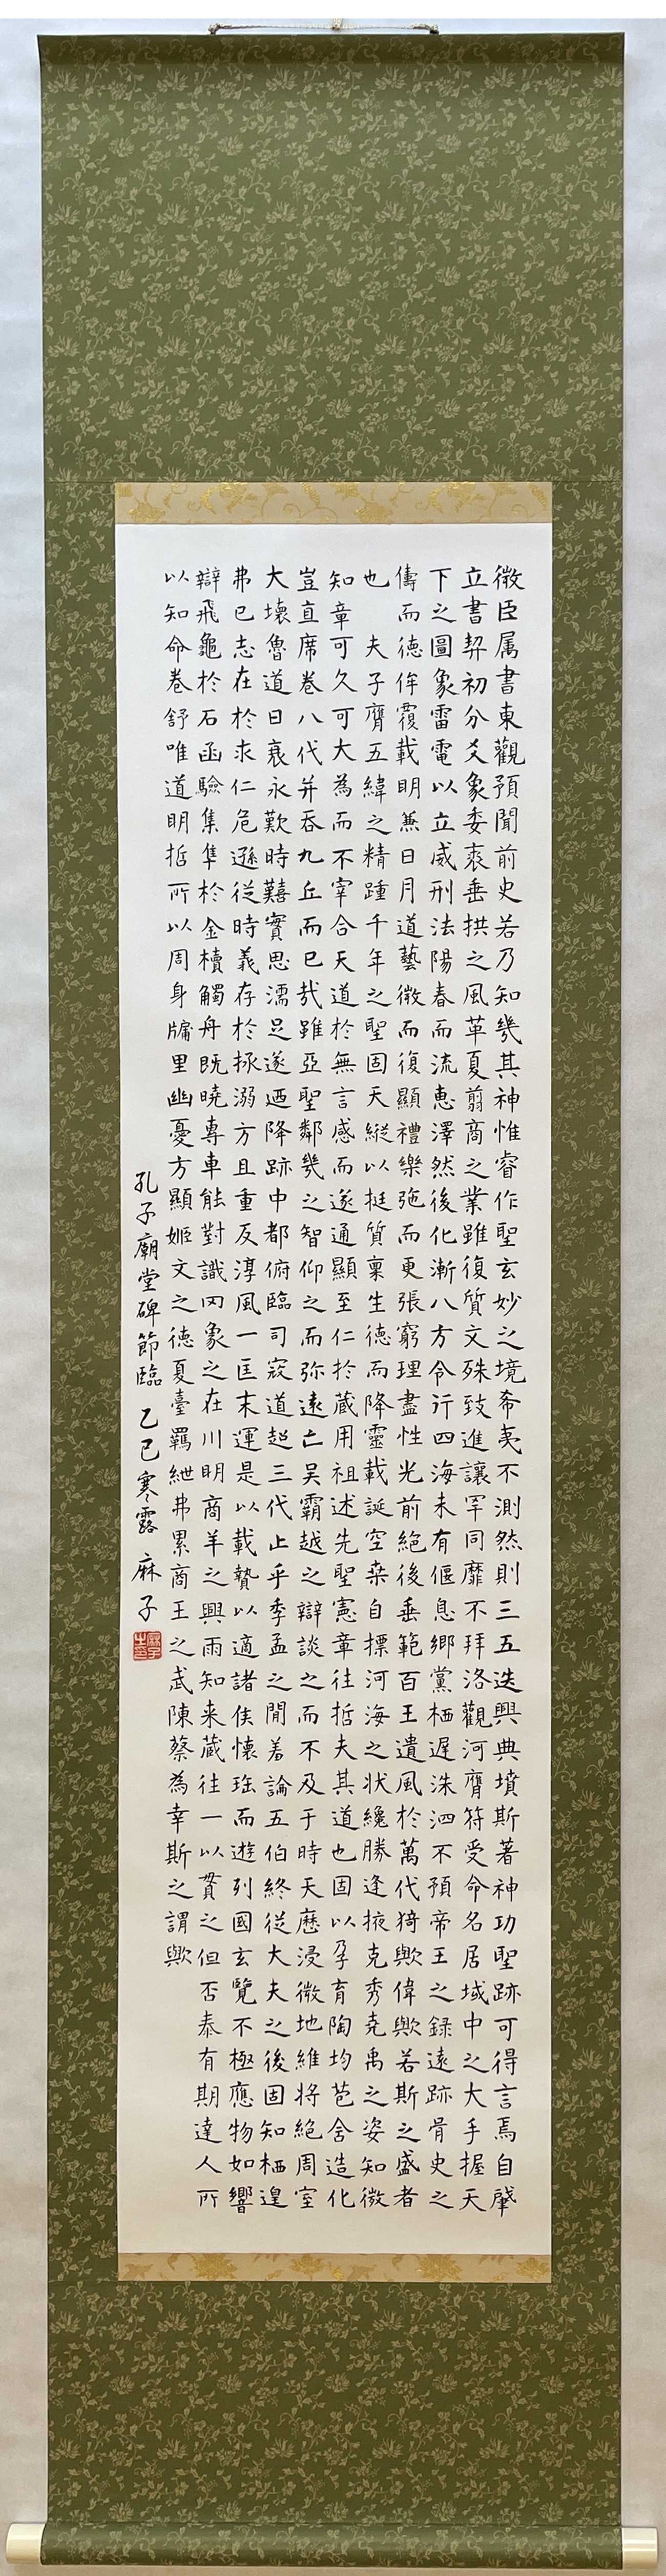 微臣属書東觀預聞前史若乃知幾其神惟睿作聖玄妙之境希夷不測然則三五迭興典墳斯著神功聖跡可得言焉自肇
立書契初分爻象委裘垂拱之風革夏翦商之業雖復質文殊致進讓罕同靡不拜洛觀河膺符受命名居域中之大手握天
下之圖象雷電以立威刑法陽春而流惠澤然後化漸八方令行四海未有偃息鄉黨栖遲洙泗不預帝王之録遠跡胥史之
儔而徳侔覆載明兼日月道藝微而復顯禮樂弛而更張窮理盡性光前絶後垂範百王遺風於萬代猗歟偉歟若斯之盛者
也 夫子膺五緯之精踵千年之聖固天縱以挺質稟生徳而降靈載誕空桒自標河海之状纔勝逢掖克秀堯禹之姿知微
知章可久可大為而不宰合天道於無言感而遂通顯至仁於蔵用祖述先聖憲章往哲夫其道也固以孕育陶均苞含造化
豈直席卷八代并吞九丘而已哉雖亞聖鄰幾之智仰之而弥遠亡吴霸越之辯談之而不及于時天歷浸微地維将絶周室
大壊魯道日衰永歎時囏實思濡足遂迺降跡中都俯臨司寇道超三代止乎季孟之閒羞論五伯終従大夫之後固知栖遑
弗已志在於求仁危遜従時義存於拯溺方且重反淳風一匡末運是以載贄以適諸侯懐珤而遊列國玄覽不極應物如響
辯飛龜於石函驗集隼於金櫝觸舟既曉專車能對識罔象之在川明商羊之興雨知来蔵往一以貫之但否泰有期達人所
以知命卷舒唯道明哲所以周身牖里幽憂方顯姬文之徳夏臺羈紲弗累商王之武陳蔡為幸斯之謂歟
孔子廟堂碑節臨 乙巳寒露 麻子